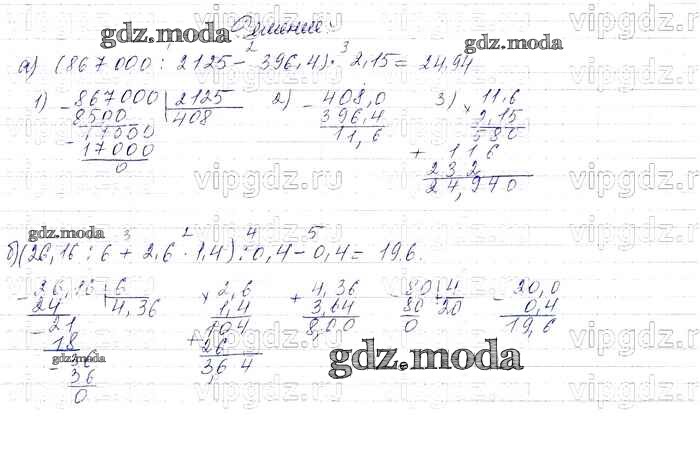 Решение:
1 2 3
а) (867000 : 2125 - 396,4) · 2,15 = 24,94
1) - 867000 | 2125 2) - 408,0 3) × 11,6
8500 408 396,4 2,15
17000 11,6 580
- 17000 + 116
0 232
24,940
1 3 2 4 5
б) (26,16 : 6 + 2,6 · 1,4) : 0,4 - 0,4 = 19,6.
- 26,16 | 6 × 2,6 + 4,36 - 80 | 4 - 20,0
24 4,36 1,4 3,64 80 20 0,4
- 21 104 8,00 0 19,6
18 + 26
- 36 3,64
36
0
gdz.moda
gdz.moda
gdz.moda
gdz.moda
gdz.moda
vipgdz.ru